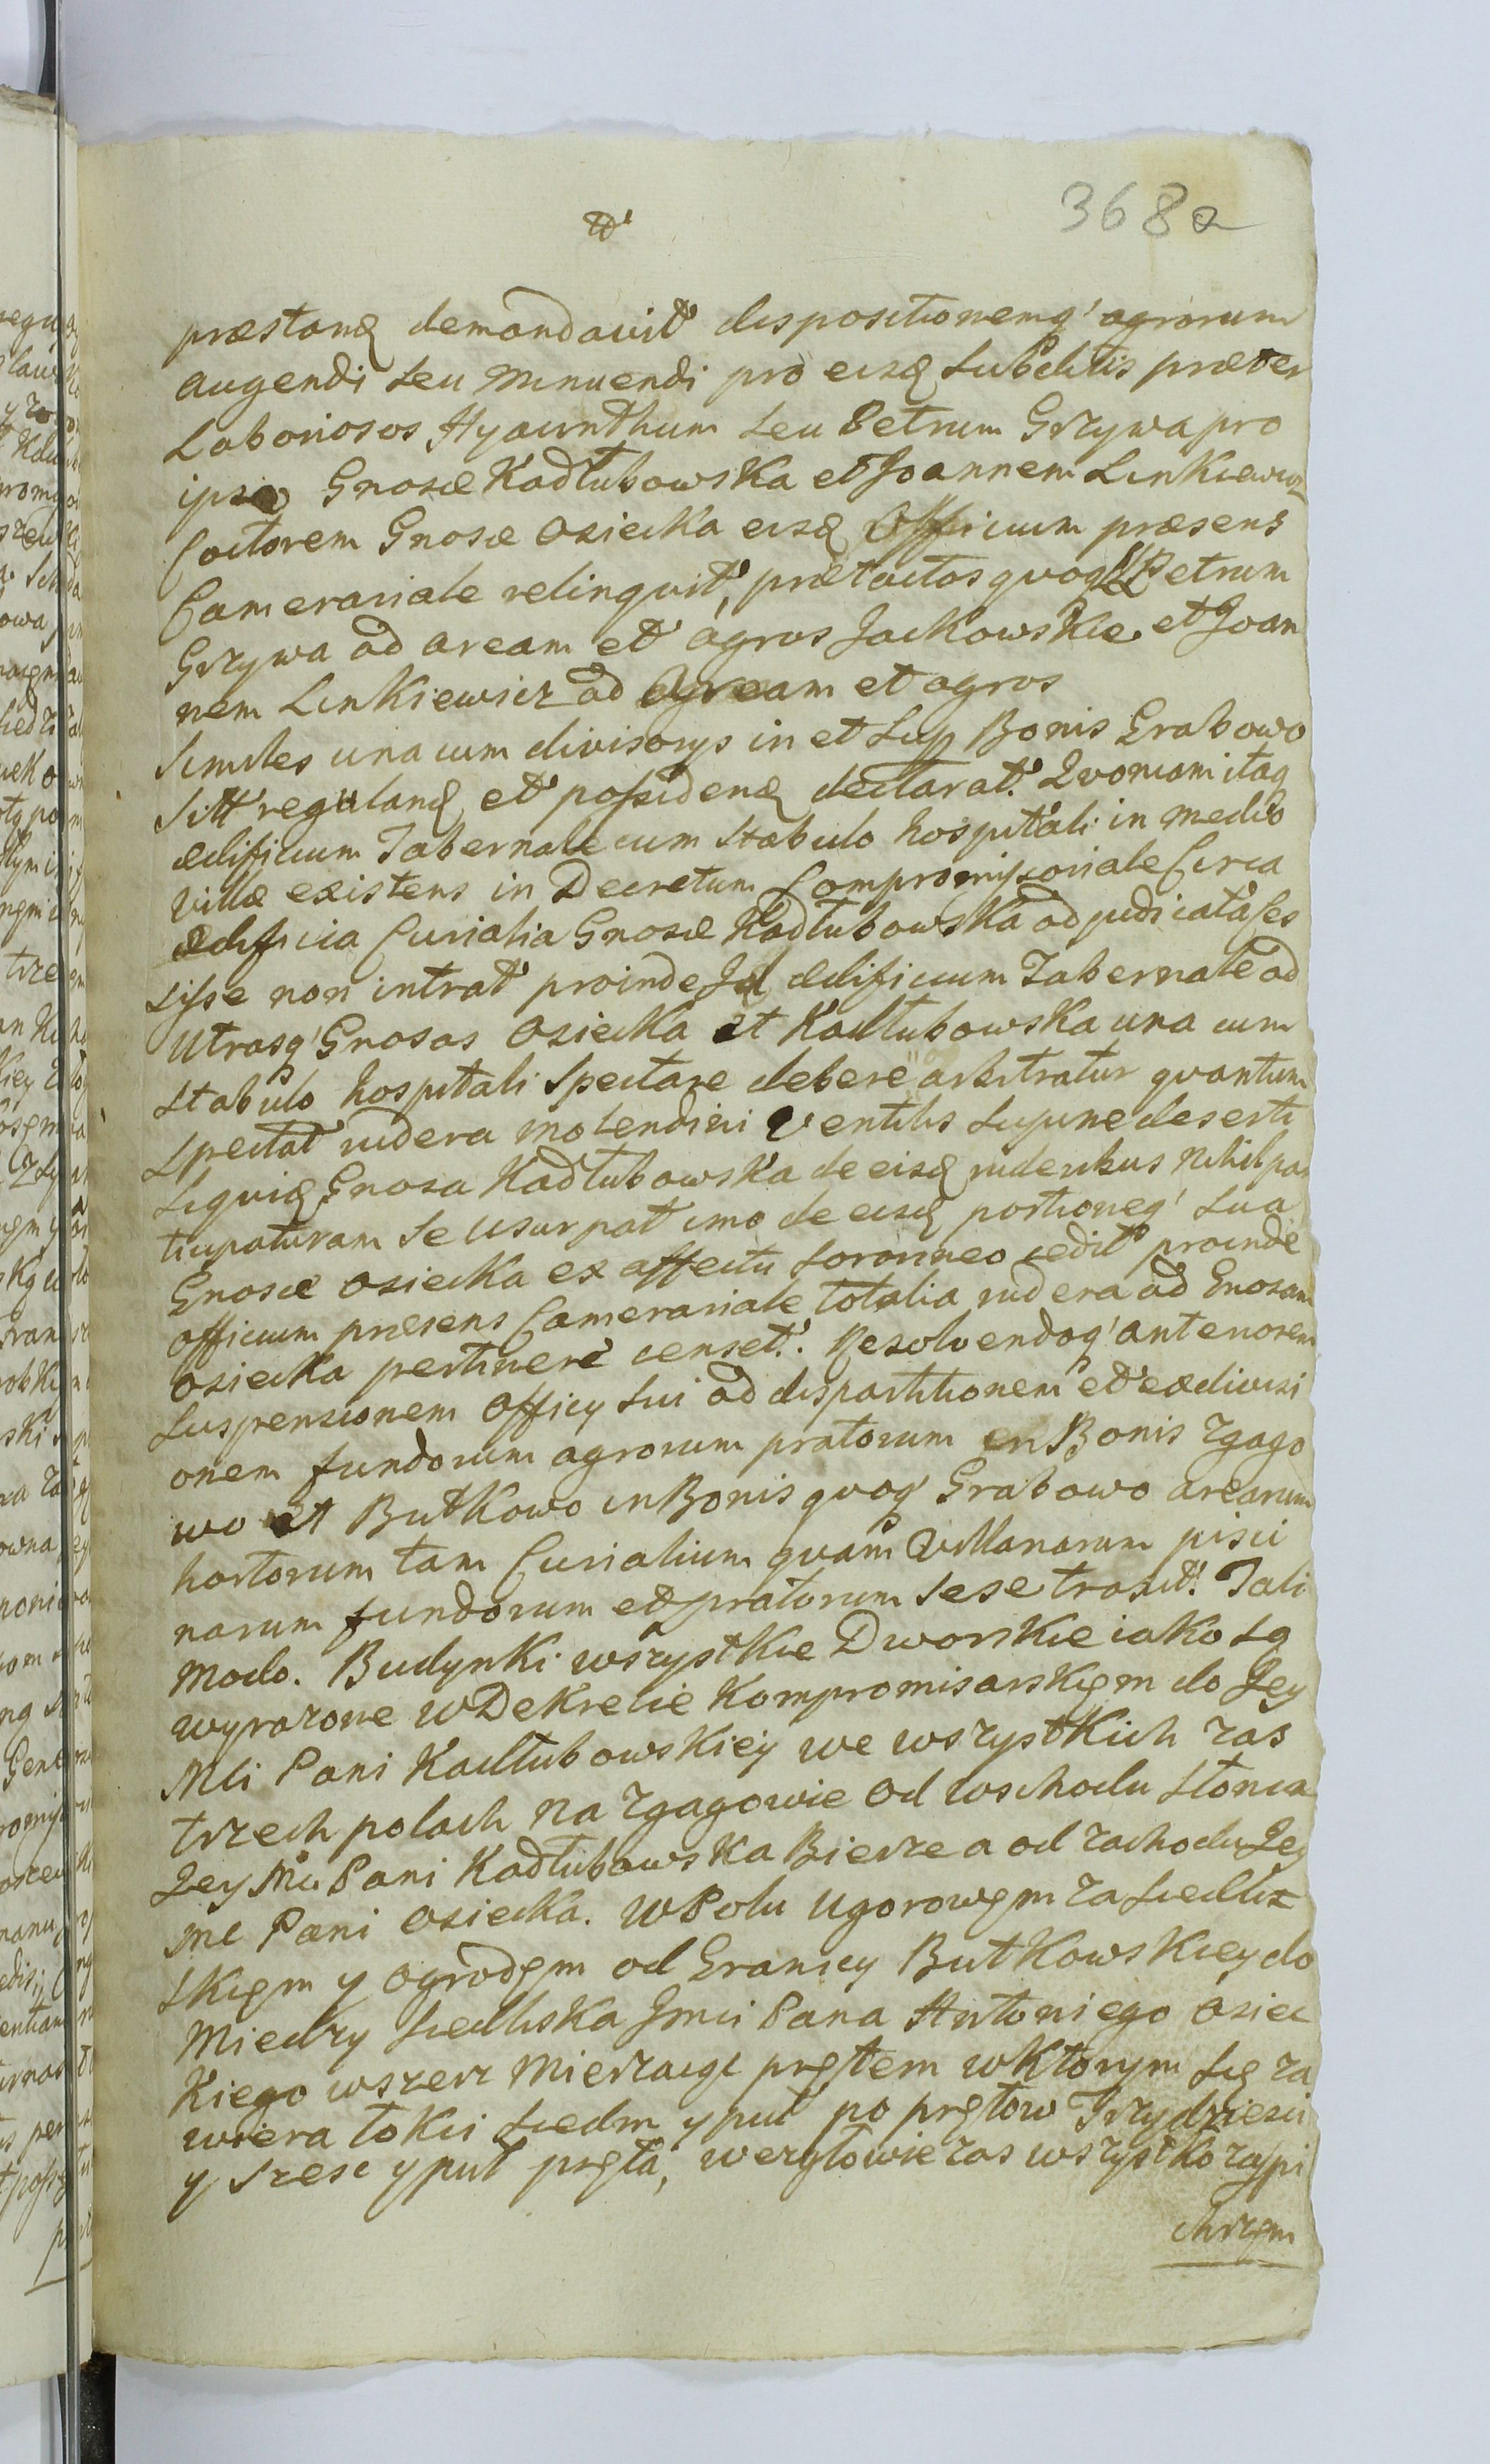 368a
præstand demandavit dispositionemq' agrorum
augendi seu minuendi pro eisd Subditis præter
Laboriosos Hyacinthum seu Petrum Grzywa pro
ipsa Gnosæ Kadłubowska et Joannem Linkiewicz
Coctorem Gnosæ Osiecka eisd Officium præsens
Camerariale relinquit, prætactos quoq' LL Petrum
Grzywa ad aream et agros Jackowskie et Joan
nem Linkiewicz ad aream et agros
Similes una cum divisorys in et Sup Bonis Grabowo
Sitt reguland et possidend declarat. Quoniam itaq
ædificium Tabernale cum Stabulo hospitali in medio
villæ existens in Decretum Compromissoriale Circa
ædificia Curialia Gnosæ Kadłubowska adjudicata Ces
sisse non intrat proinde Id ædificium Tabernale ad
utrasq' Gnosas Osiecka et Kadłubowska una cum
Stabulo hospitali Spectare debere arbitratur quantum
Spectat rudera molendini Ventilis Supine deserti
Siquid Gnosa Kadłubowska de eisd ruderibus nihil par
ticipaturam Se usurpat imo de eisd portioneq' Sua
Gnosæ Osiecka ex affectu Sororineo cedit proinde
officium præsens Camerariale totalia rudera ad Gnosam
Osiecka pertinere censet. Resolvendoq' anteriorem
Suspensionem Officy Sui ad dispartitionem et exdivisi
onem fundorum agrorum pratorum in Bonis Zgago
wo et Butkowo in Bonis quoq' Grabowo arearum
hortorum tam Curialium quam Villanarum pisci
narum fundorum et pratorum Sese traxit. Tali
Modo. Budynki wszystkie Dworskie iako Są
wyrazone w Dekrecie Kompromisarskięm do Jey
Mci Pani Kadłubowskiey we wszystkich zas
trzech polach na Zgagowie od wschodu Słonca
Jey Mci Pani Kadłubowska Bierze a od zachodu Jey
Mc Pani Osiecka. W Polu Ugorowęm za Siedlis
Skięm y ogrodęm od Granicy Butkowskiey do
Miedzy Siedliska Jmci Pana Antoniego Osiec
Kiego wszerz Mierzaiąc prętem w Ktorym Się za
wiera łokci Siedm y puł po prętow Trzydziesci
y Szesc y puł pręta, wezgłowie zas wszystko zaspi
chrzęm